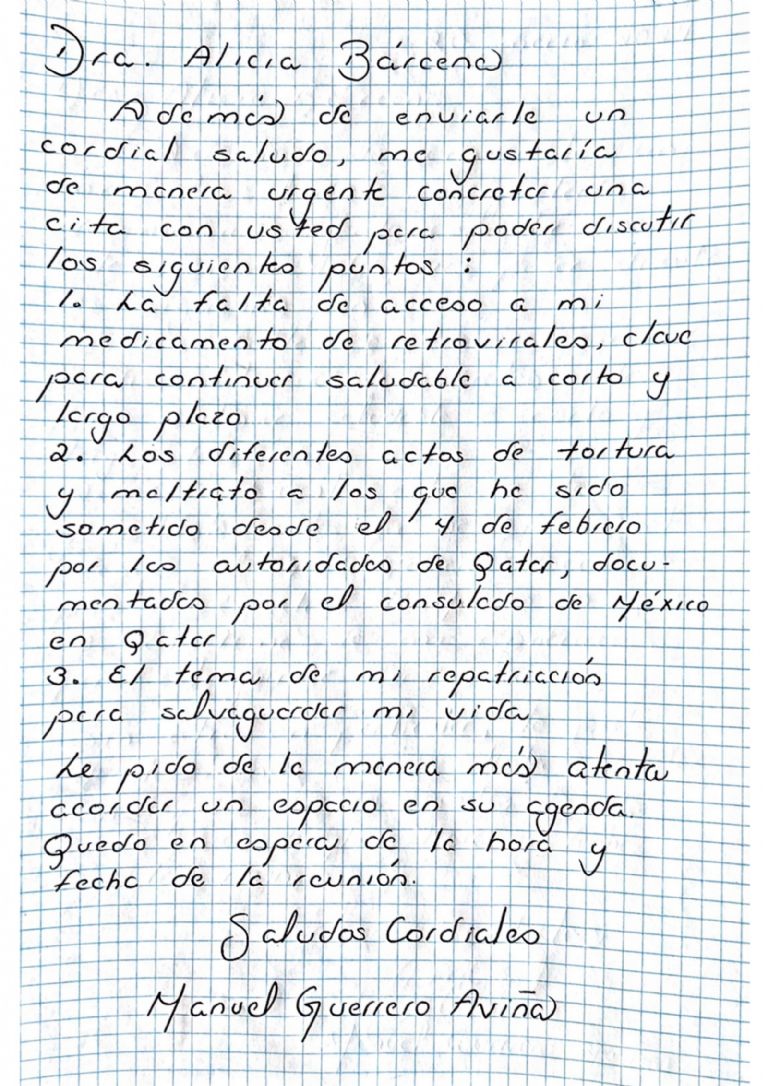 Dra. Alicia Bárcena
Además de enviarle un
cordial saludo, me gustaría
de manera urgente concretar una
cita con usted para poder discutir
los siguientes puntos :
1. La falta de acceso a mi
medicamento de retrovirales, clave
para continuar saludable a corto y
largo plazo
2. Los diferentes actos de tortura
y maltrato a los que he sido
sometido desde el 4 de febrero
por las autoridades de Qatar, docu-
mentadas por el consulado de México
en Qatar
3. El tema de mi repatriación
para salvaguardar mi vida
Le pido de la manera más atenta
acordar un espacio en su agenda.
Quedo en espera de la hora y
fecha de la reunión.
Saludos Cordiales
Manuel Guerrero Aviña